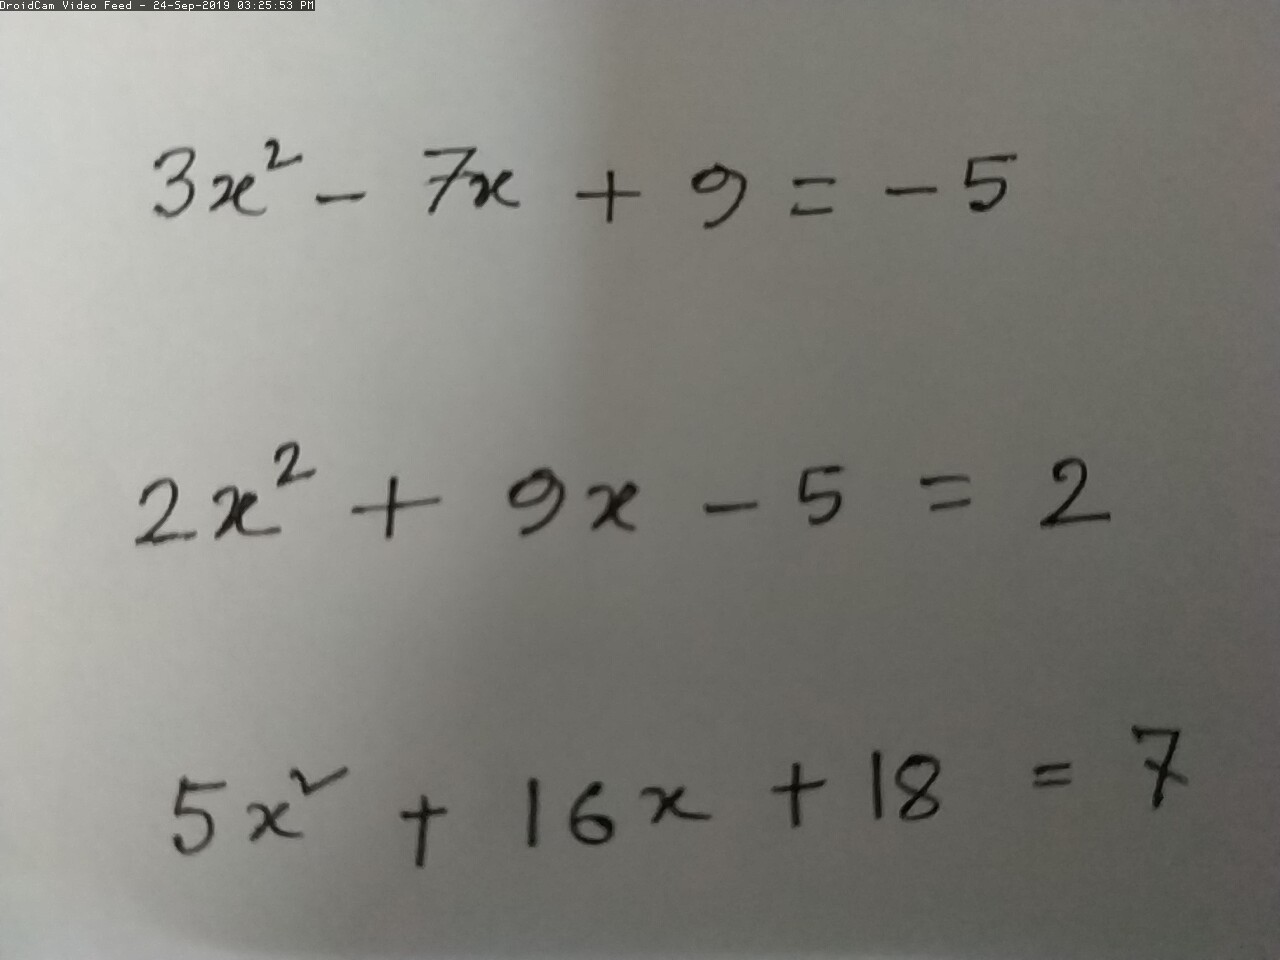 DroidCam Video Feed - 24-Sep-2019 03:25:53 PM
3x² - 7x + 9 = -5
2x² + 9x - 5 = 2
5x² + 16x + 18 = 7